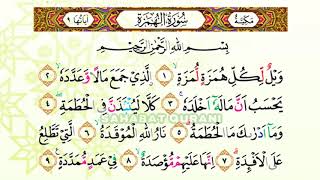 مَكِّيَّة سُورَةُ الْهُمَزَةِ آيَاتُهَا ٩
بِسْمِ اللهِ الرَّحْمٰنِ الرَّحِيْمِ
وَيْلٌ لِّكُلِّ هُمَزَةٍ لُّمَزَةٍ ۙ ١ الَّذِيْ جَمَعَ مَالًا وَّعَدَّدَهٗ ۙ ٢
يَحْسَبُ اَنَّ مَالَهٗٓ اَخْلَدَهٗ ۚ ٣ كَلَّا لَيُنْۢبَذَنَّ فِى الْحُطَمَةِ ۖ ٤
SAHABAT QURANI
وَمَآ اَدْرٰىكَ مَا الْحُطَمَةُ ۗ ٥ نَارُ اللهِ الْمُوْقَدَةُ ۙ ٦ الَّتِيْ تَطَّلِعُ
عَلَى الْاَفْـِٕدَةِ ۗ ٧ اِنَّهَا عَلَيْهِمْ مُّؤْصَدَةٌ ۙ ٨ فِيْ عَمَدٍ مُّمَدَّدَةٍ ࣖ ٩